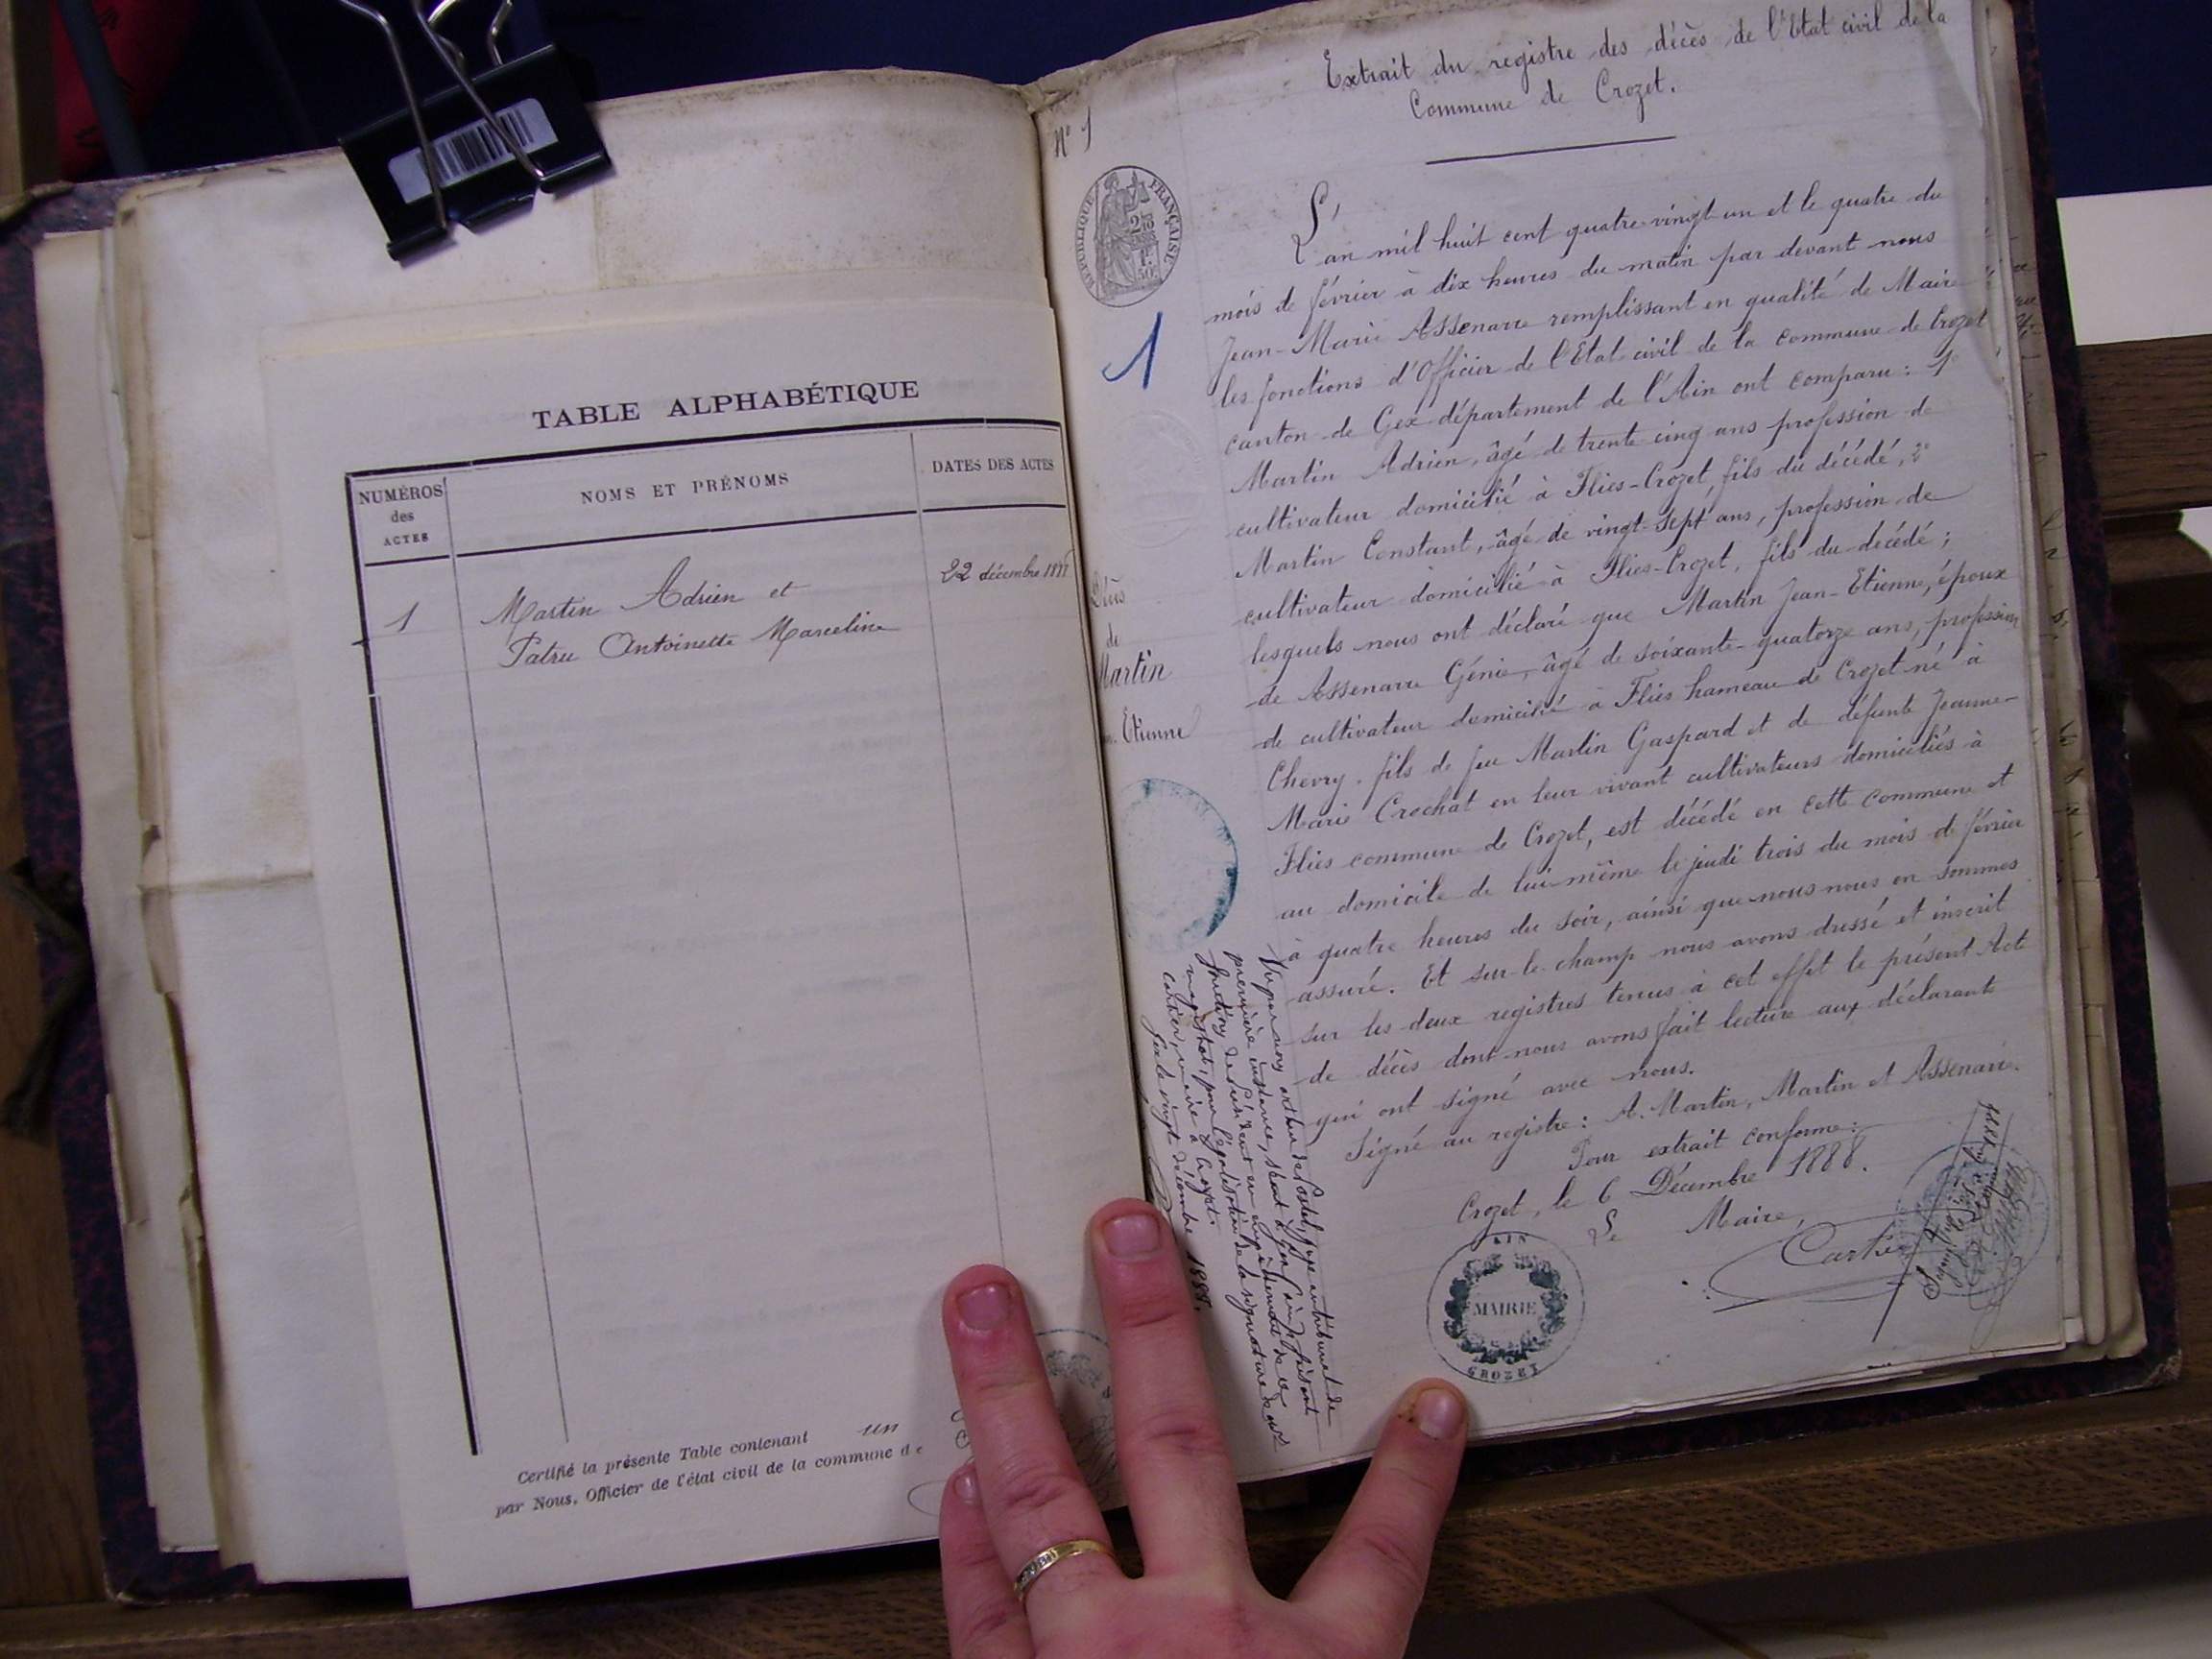 TABLE ALPHABÉTIQUE
NUMÉROS des ACTES
NOMS ET PRÉNOMS
DATES DES ACTES
1
Martin Adrien et
Patru Antoinette Marceline
22 décembre
Certifié la présente Table contenant un
par Nous, Officier de l'état civil de la commune de
N° 1
RÉPUBLIQUE FRANÇAISE
1
Extrait du registre des décès de l'Etat civil de la
Commune de Crozet.
L'an mil huit cent quatre-vingt un et le quatre du
mois de février à dix heures du matin par devant nous
Jean-Marie Assenare remplissant en qualité de Maire
les fonctions d'Officier de l'Etat civil de la commune de Crozet
canton de Gex département de l'Ain ont comparu : 1°
Martin Adrien, âgé de trente cinq ans profession de
cultivateur domicilié à Flies-Crozet, fils du décédé, 2°
Martin Constant, âgé de vingt-sept ans, profession de
cultivateur domicilié à Flies-Crozet, fils du décédé ;
lesquels nous ont déclaré que Martin Jean-Etienne, époux
de Assenare Génie, âgé de soixante-quatorze ans, profession
de cultivateur domicilié à Flies hameau de Crozet né à
Chevry, fils de feu Martin Gaspard et de défunte Jeanne-
Marie Crochat en leur vivant cultivateurs domiciliés à
Flies commune de Crozet, est décédé en cette commune et
au domicile de lui-même le jeudi trois du mois de février
à quatre heures du soir, ainsi que nous nous en sommes
assuré. Et sur-le-champ nous avons dressé et inscrit
sur les deux registres tenus à cet effet le présent Acte
de décès dont nous avons fait lecture aux déclarants
qui ont signé avec nous.
Signé au registre : A. Martin, Martin et Assenare.
Pour extrait conforme :
Crozet, le 6 Décembre 1888.
Le Maire,
Cartier
AIN
MAIRIE
CROZET
Décès
de
Martin
Etienne
Vu par nous juge au tribunal de
première instance, séant à Gex (Ain) faisant
fonctions de Président en empêchement de ce
magistrat, pour légalisation de la signature de Mr
Cartier, maire à Crozet.
Gex le vingt décembre 1888.